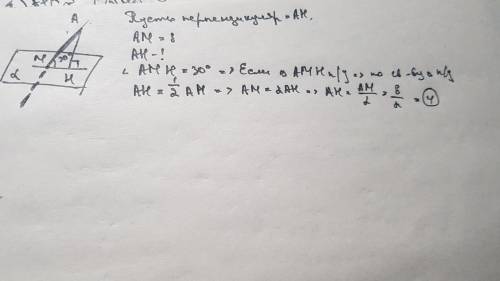 A
M 30°
α H
Пусть перпендикуляр = AH.
AM = 8
AH - !
∠ AMH = 30° => Если △ AMH п/у => по св-ву в п/у
AH = 1/2 AM => AM = 2AH => AH = AM/2 = 8/2 = 4